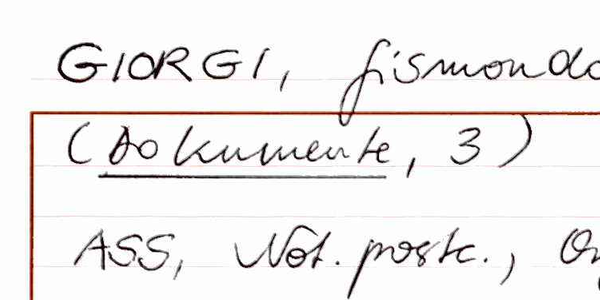 GIORGI, Gismondo
(Dokumente, 3)
ASS, Not. postc.,